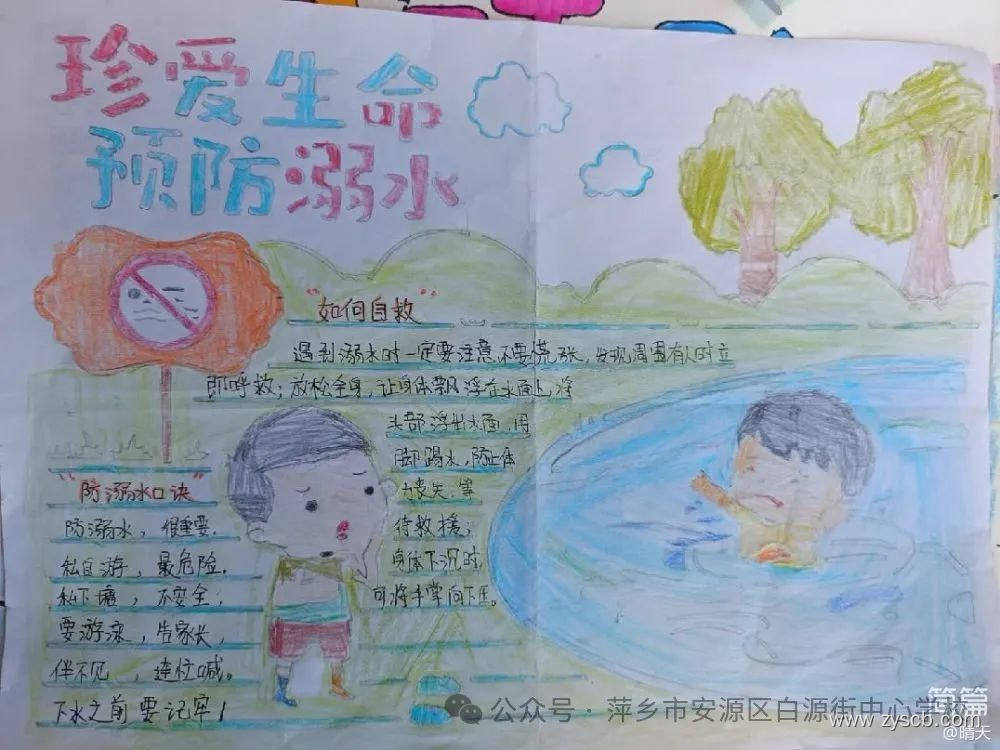 珍爱生命
预防溺水
"如何自救"
遇到溺水时一定要注意不要慌张,发现周围有人时立
即呼救;放松全身,让身体飘浮在水面上,将
头部浮出水面,用
脚踢水,防止体
力丧失,等
待救援;
身体下沉时,
可将手掌向下压。
"防溺水口诀"
防溺水,很重要.
私自游,最危险.
私下塘,不安全;
要游泳,告家长,
伴不见,连忙喊。
下水之前要记牢!
公众号·萍乡市安源区白源街中心学校
篇篇
www.zyscb.com
@晴天